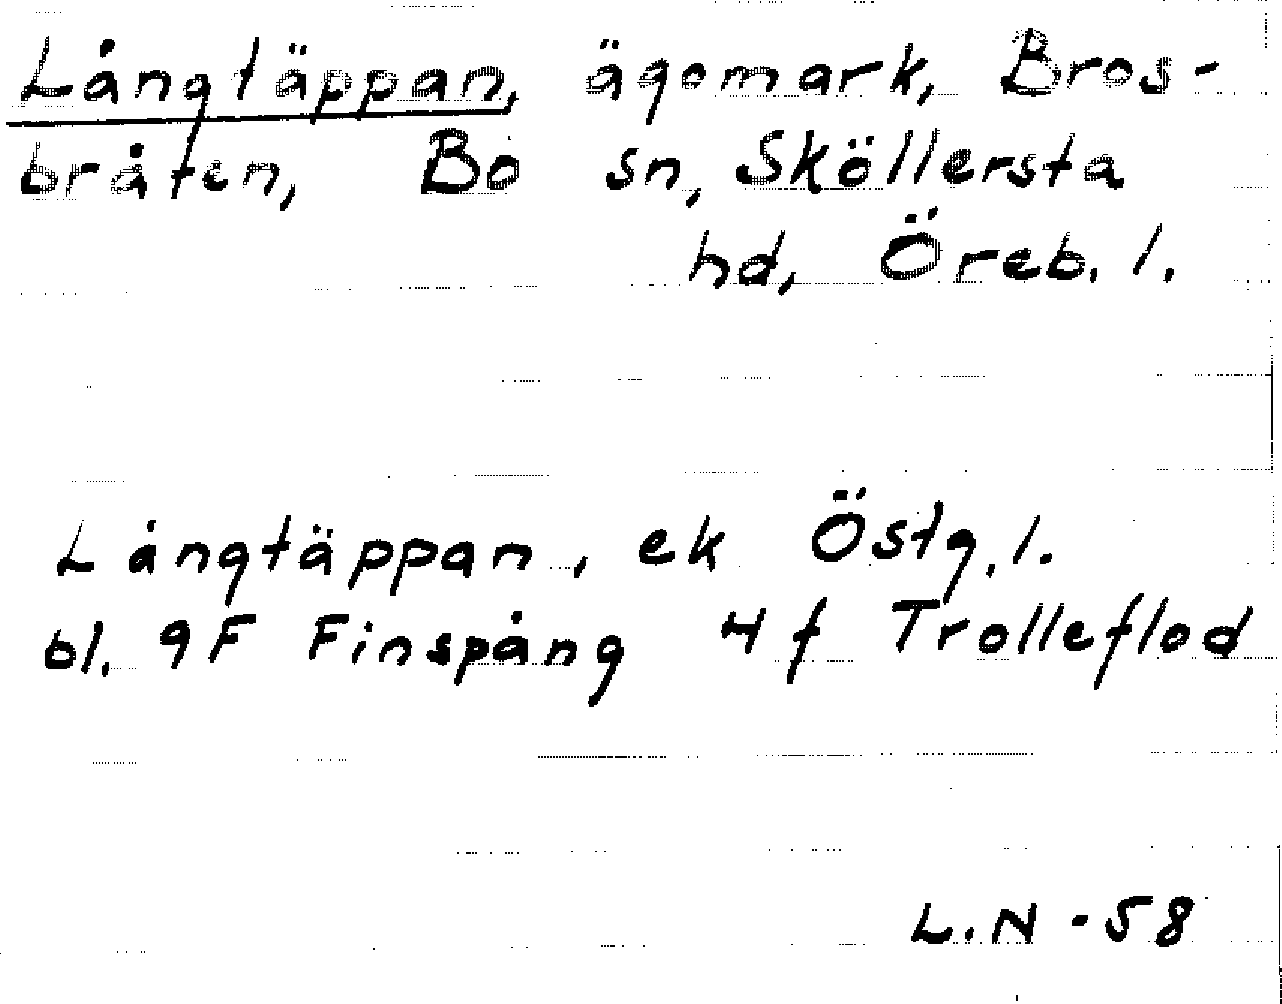 Långtäppan, ägomark, Bros-
bråten, Bo sn, Sköllersta
hd, Öreb. l.
Långtäppan, ek Östg. l.
bl. 9F Finspång 4f Trolleflod
L.N -58